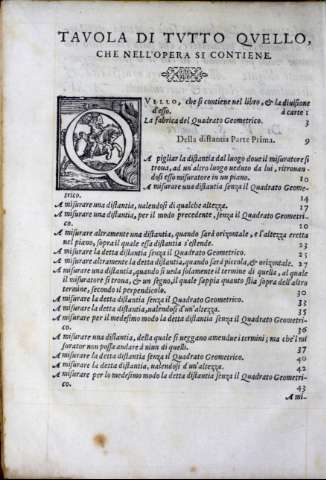 TAVOLA DI TVTTO QVELLO,
CHE NELL'OPERA SI CONTIENE.
QVELLO, che si contiene nel libro, & la diuisione
d'esso. à carte 1
La fabrica del Quadrato Geometrico. 3
Della distantia Parte Prima. 9
A pigliar la distantia dal luogo doue il misuratore si
troua, ad un'altro luogo ueduto da lui, ritrouan-
dosi esso misuratore in un piano. 10
A misurare una distantia senza il Quadrato Geome-
trico. 14
A misurare una distantia, ualendosi di qualche altezza. 17
A misurare una distantia, per il modo precedente, senza il Quadrato Geometri-
co. 20
A misurare altramente una distantia, quando sarà orizontale, e l'altezza eretta
nel piano, sopra il quale essa distantia s'estende. 23
A misurare la detta distantia senza il Quadrato Geometrico. 25
A misurare altramente la detta distantia, quando sarà picciola, & orizontale. 27
A misurare una distantia, quando si ueda solamente il termine di quella, al quale
il misuratore si troua, & un segno, il quale sappia quanto stia sopra dell'altro
termine, secondo il perpendicolo. 30
A misurare la detta distantia senza il Quadrato Geometrico. 33
A misurare la detta distantia, ualendosi d'un'altezza. 35
A misurare per il medesimo modo la detta distantia senza il Quadrato Geometri-
co. 36
A misurare una distantia, della quale si ueggano amendue i termini; ma che'l mi-
surator non possa andare à niun di quelli. 37
A misurare la detta distantia senza il Quadrato Geometrico. 40
A misurare la detta distantia, ualendosi d'un'altezza. 42
A misurare per lo medesimo modo la detta distantia senza il Quadrato Geometri-
co. 43
A mi-